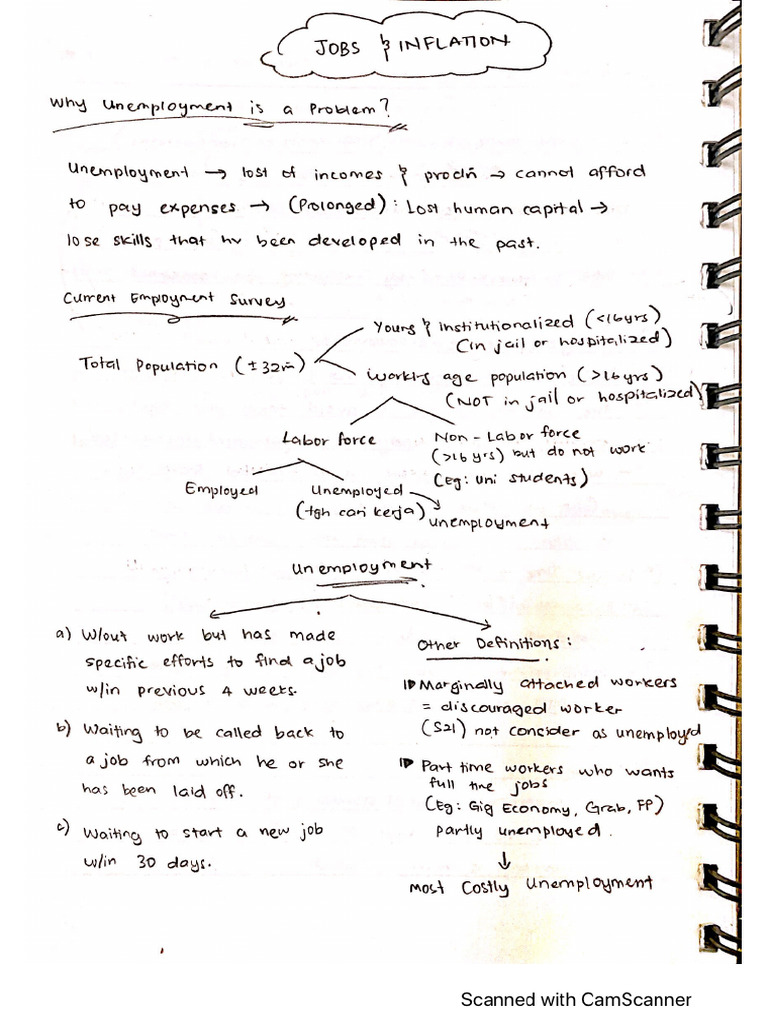 JOBS & INFLATION
Why Unemployment is a Problem?
Unemployment → lost of incomes & prodn → cannot afford
to pay expenses → (Prolonged) : Lost human capital →
lose skills that hv been developed in the past.
Current Employment Survey
Total Population (±32m)
Yours & Institutionalized (<16yrs)
(in jail or hospitalized)
Working age population (>16yrs)
(NOT in jail or hospitalized)
Labor force
Non-Labor force
(>16 yrs) but do not work
(eg: Uni students)
Employed
Unemployed
(tgh cari kerja)
unemployment
Unemployment
a) W/out work but has made
specific efforts to find a job
w/in previous 4 weeks.
b) Waiting to be called back to
a job from which he or she
has been laid off.
c) Waiting to start a new job
w/in 30 days.
Other Definitions :
Marginally attached workers
= discouraged worker
(S21) not consider as unemployed
Part time workers who wants
full time jobs
(Eg: Gig Economy, Grab, FP)
partly unemployed.
↓
Most Costly Unemployment
Scanned with CamScanner